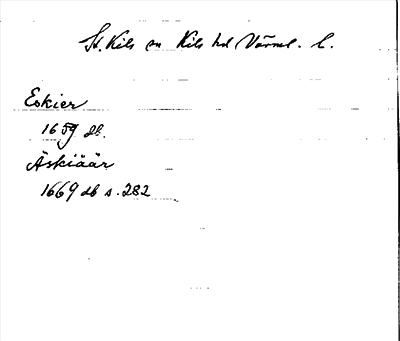 St. Kils sn Kils hd Värml. l.
Eskier
1659 db.
Äskiäär
1669 db s. 282